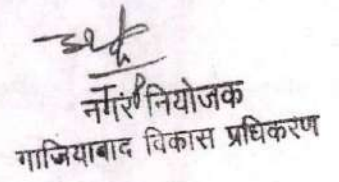 नगर नियोजक
गाजियाबाद विकास प्रधिकरण